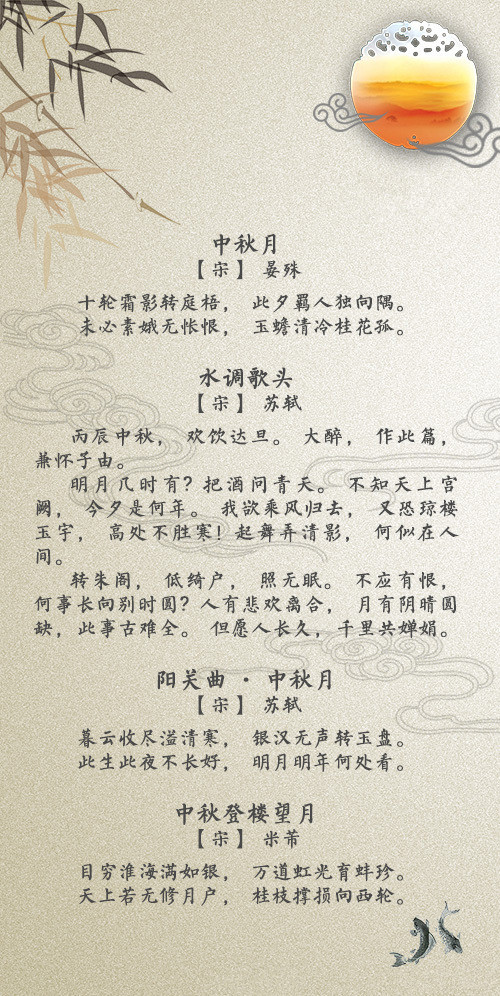 中秋月
【宋】 晏殊
十轮霜影转庭梧， 此夕羁人独向隅。
未必素娥无怅恨， 玉蟾清冷桂花孤。
水调歌头
【宋】 苏轼
丙辰中秋， 欢饮达旦。 大醉， 作此篇，
兼怀子由。
明月几时有？把酒问青天。 不知天上宫
阙， 今夕是何年。 我欲乘风归去， 又恐琼楼
玉宇， 高处不胜寒！起舞弄清影， 何似在人
间。
转朱阁， 低绮户， 照无眠。 不应有恨，
何事长向别时圆？人有悲欢离合， 月有阴晴圆
缺，此事古难全。 但愿人长久，千里共婵娟。
阳关曲 · 中秋月
【宋】 苏轼
暮云收尽溢清寒， 银汉无声转玉盘。
此生此夜不长好， 明月明年何处看。
中秋登楼望月
【宋】 米芾
目穷淮海满如银， 万道虹光育蚌珍。
天上若无修月户， 桂枝撑损向西轮。